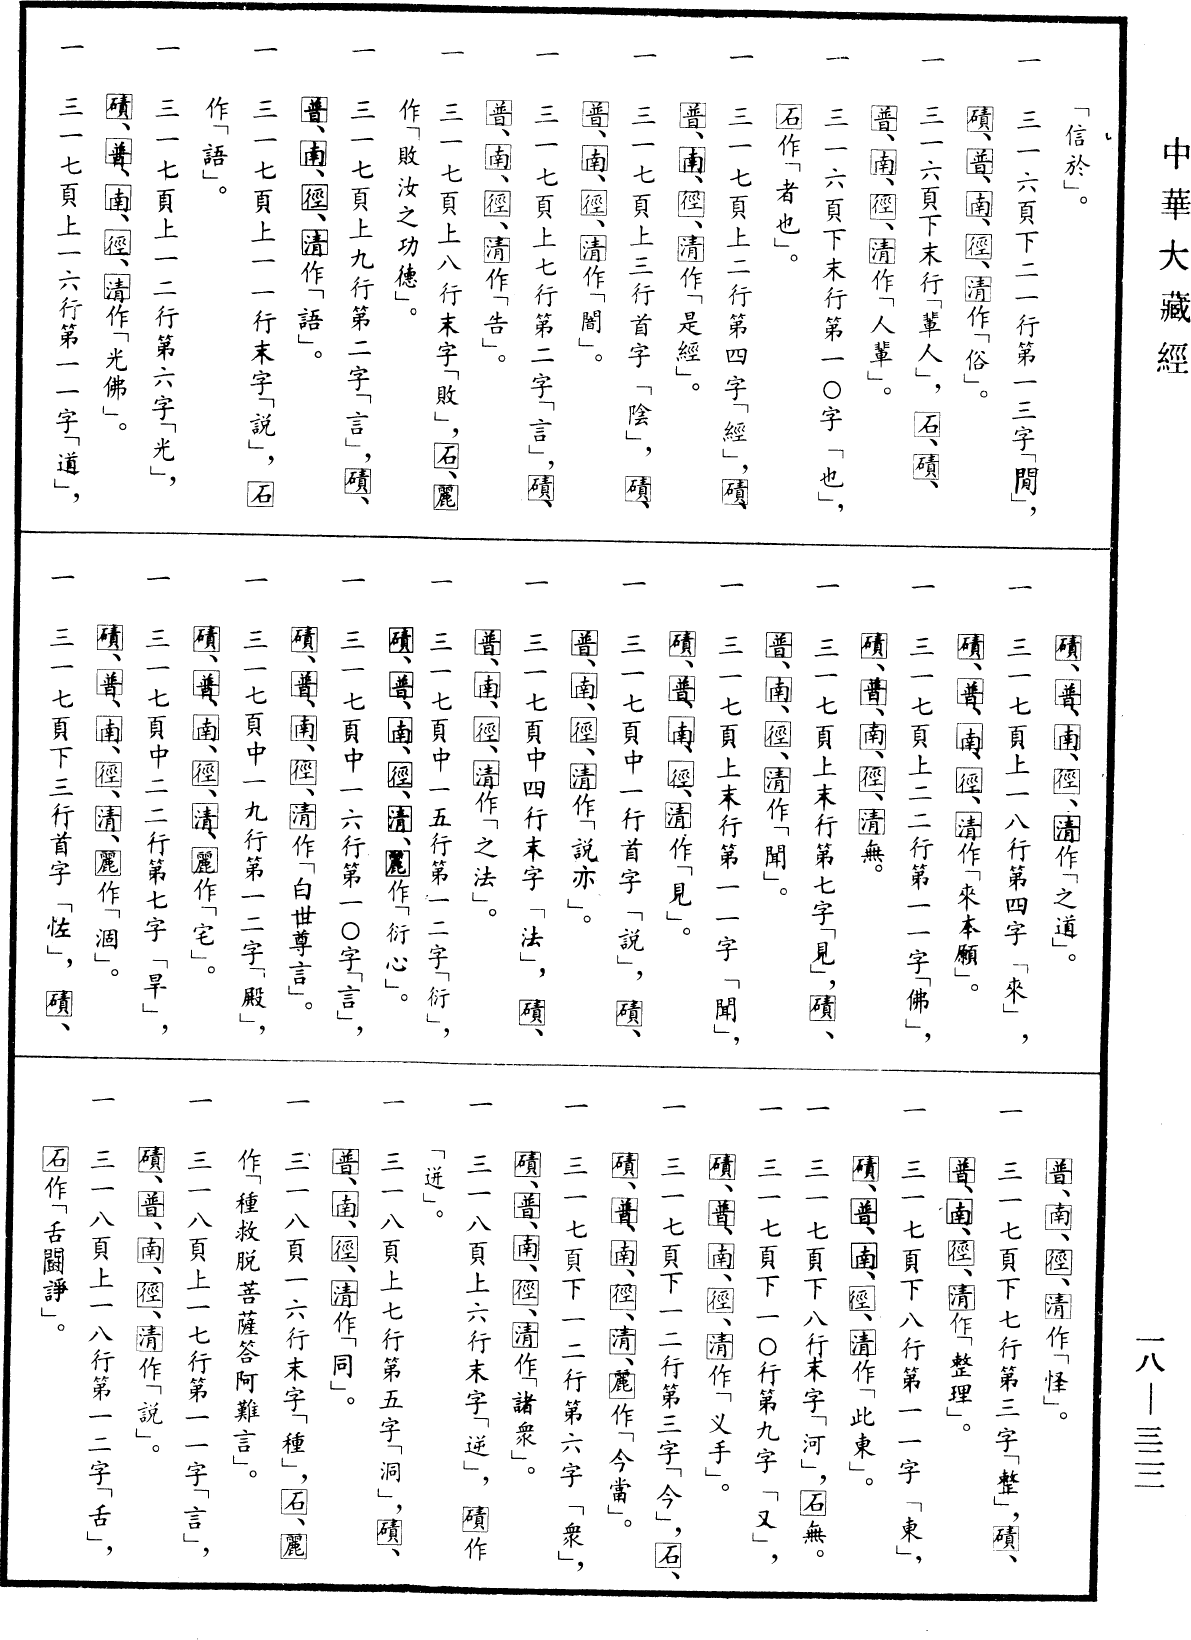 中華大藏經
一八—三二二
「信於」。
一　三一六頁下二一行第一三字「閒」，
磧、普、南、徑、清作「俗」。
一　三一六頁下末行「輩人」，石、磧、
普、南、徑、清作「人輩」。
一　三一六頁下末行第一〇字「也」，
石作「者也」。
一　三一七頁上二行第四字「經」，磧、
普、南、徑、清作「是經」。
一　三一七頁上三行首字「陰」，磧、
普、南、徑、清作「闇」。
一　三一七頁上七行第二字「言」，磧、
普、南、徑、清作「告」。
一　三一七頁上八行末字「敗」，石、麗
作「敗汝之功德」。
一　三一七頁上九行第二字「言」，磧、
普、南、徑、清作「語」。
一　三一七頁上一一行末字「說」，石
作「語」。
一　三一七頁上一二行第六字「光」，
磧、普、南、徑、清作「光佛」。
一　三一七頁上一六行第一一字「道」，
磧、普、南、徑、清作「之道」。
一　三一七頁上一八行第四字「來」，
磧、普、南、徑、清作「來本願」。
一　三一七頁上二二行第一一字「佛」，
磧、普、南、徑、清無。
一　三一七頁上末行第七字「見」，磧、
普、南、徑、清作「聞」。
一　三一七頁上末行第一一字「聞」，
磧、普、南、徑、清作「見」。
一　三一七頁中一行首字「說」，磧、
普、南、徑、清作「說亦」。
一　三一七頁中四行末字「法」，磧、
普、南、徑、清作「之法」。
一　三一七頁中一五行第一二字「衍」，
磧、普、南、徑、清、麗作「衍心」。
一　三一七頁中一六行第一〇字「言」，
磧、普、南、徑、清作「白世尊言」。
一　三一七頁中一九行第一二字「殿」，
磧、普、南、徑、清、麗作「宅」。
一　三一七頁中二二行第七字「旱」，
磧、普、南、徑、清、麗作「涸」。
一　三一七頁下三行首字「恠」，磧、
普、南、徑、清作「怪」。
一　三一七頁下七行第三字「整」，磧、
普、南、徑、清作「整理」。
一　三一七頁下八行第一一字「東」，
磧、普、南、徑、清作「此東」。
一　三一七頁下八行末字「河」，石無。
一　三一七頁下一〇行第九字「又」，
磧、普、南、徑、清作「义手」。
一　三一七頁下一二行第三字「今」，石、
磧、普、南、徑、清、麗作「今當」。
一　三一七頁下一二行第六字「衆」，
磧、普、南、徑、清作「諸衆」。
一　三一八頁上六行末字「逆」，磧作
「迸」。
一　三一八頁上七行第五字「洞」，磧、
普、南、徑、清作「同」。
一　三一八頁一六行末字「種」，石、麗
作「種救脫菩薩答阿難言」。
一　三一八頁上一七行第一一字「言」，
磧、普、南、徑、清作「說」。
一　三一八頁上一八行第一二字「舌」，
石作「舌鬪諍」。